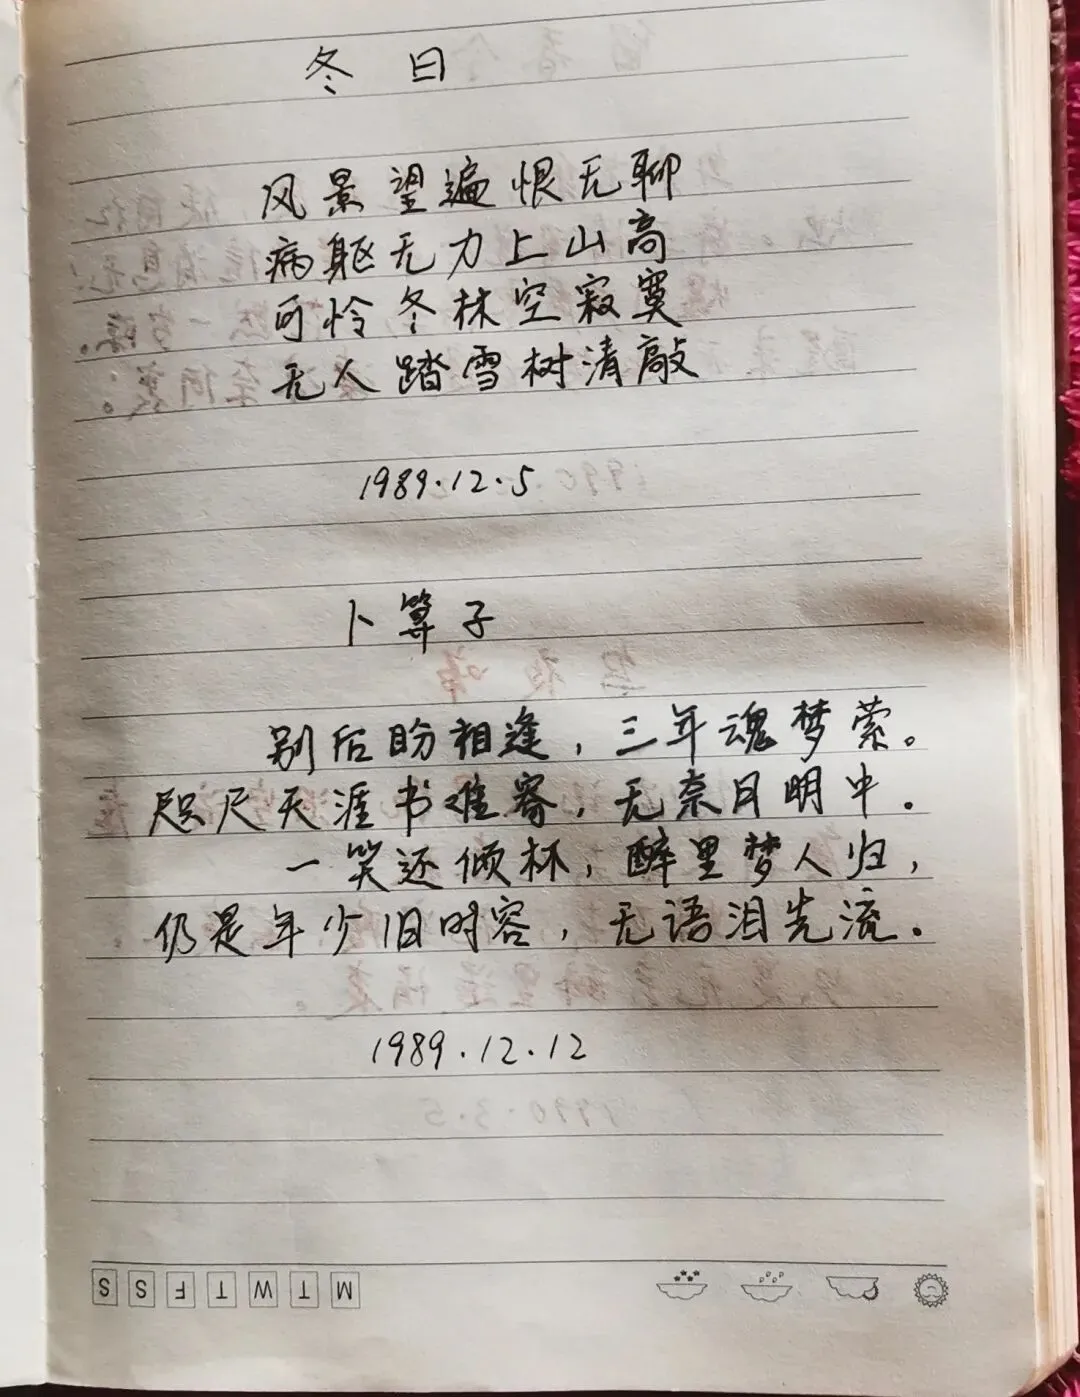 冬日
风景望遍恨无聊
病躯无力上山高
可怜冬林空寂寞
无人踏雪树清敲
1989.12.5
卜算子
别后盼相逢，三年魂梦萦。
咫尺天涯书难寄，无奈月明中。
一笑还倾杯，醉里梦人归，
仍是年少旧时容，无语泪先流。
1989.12.12
M T W T F S S